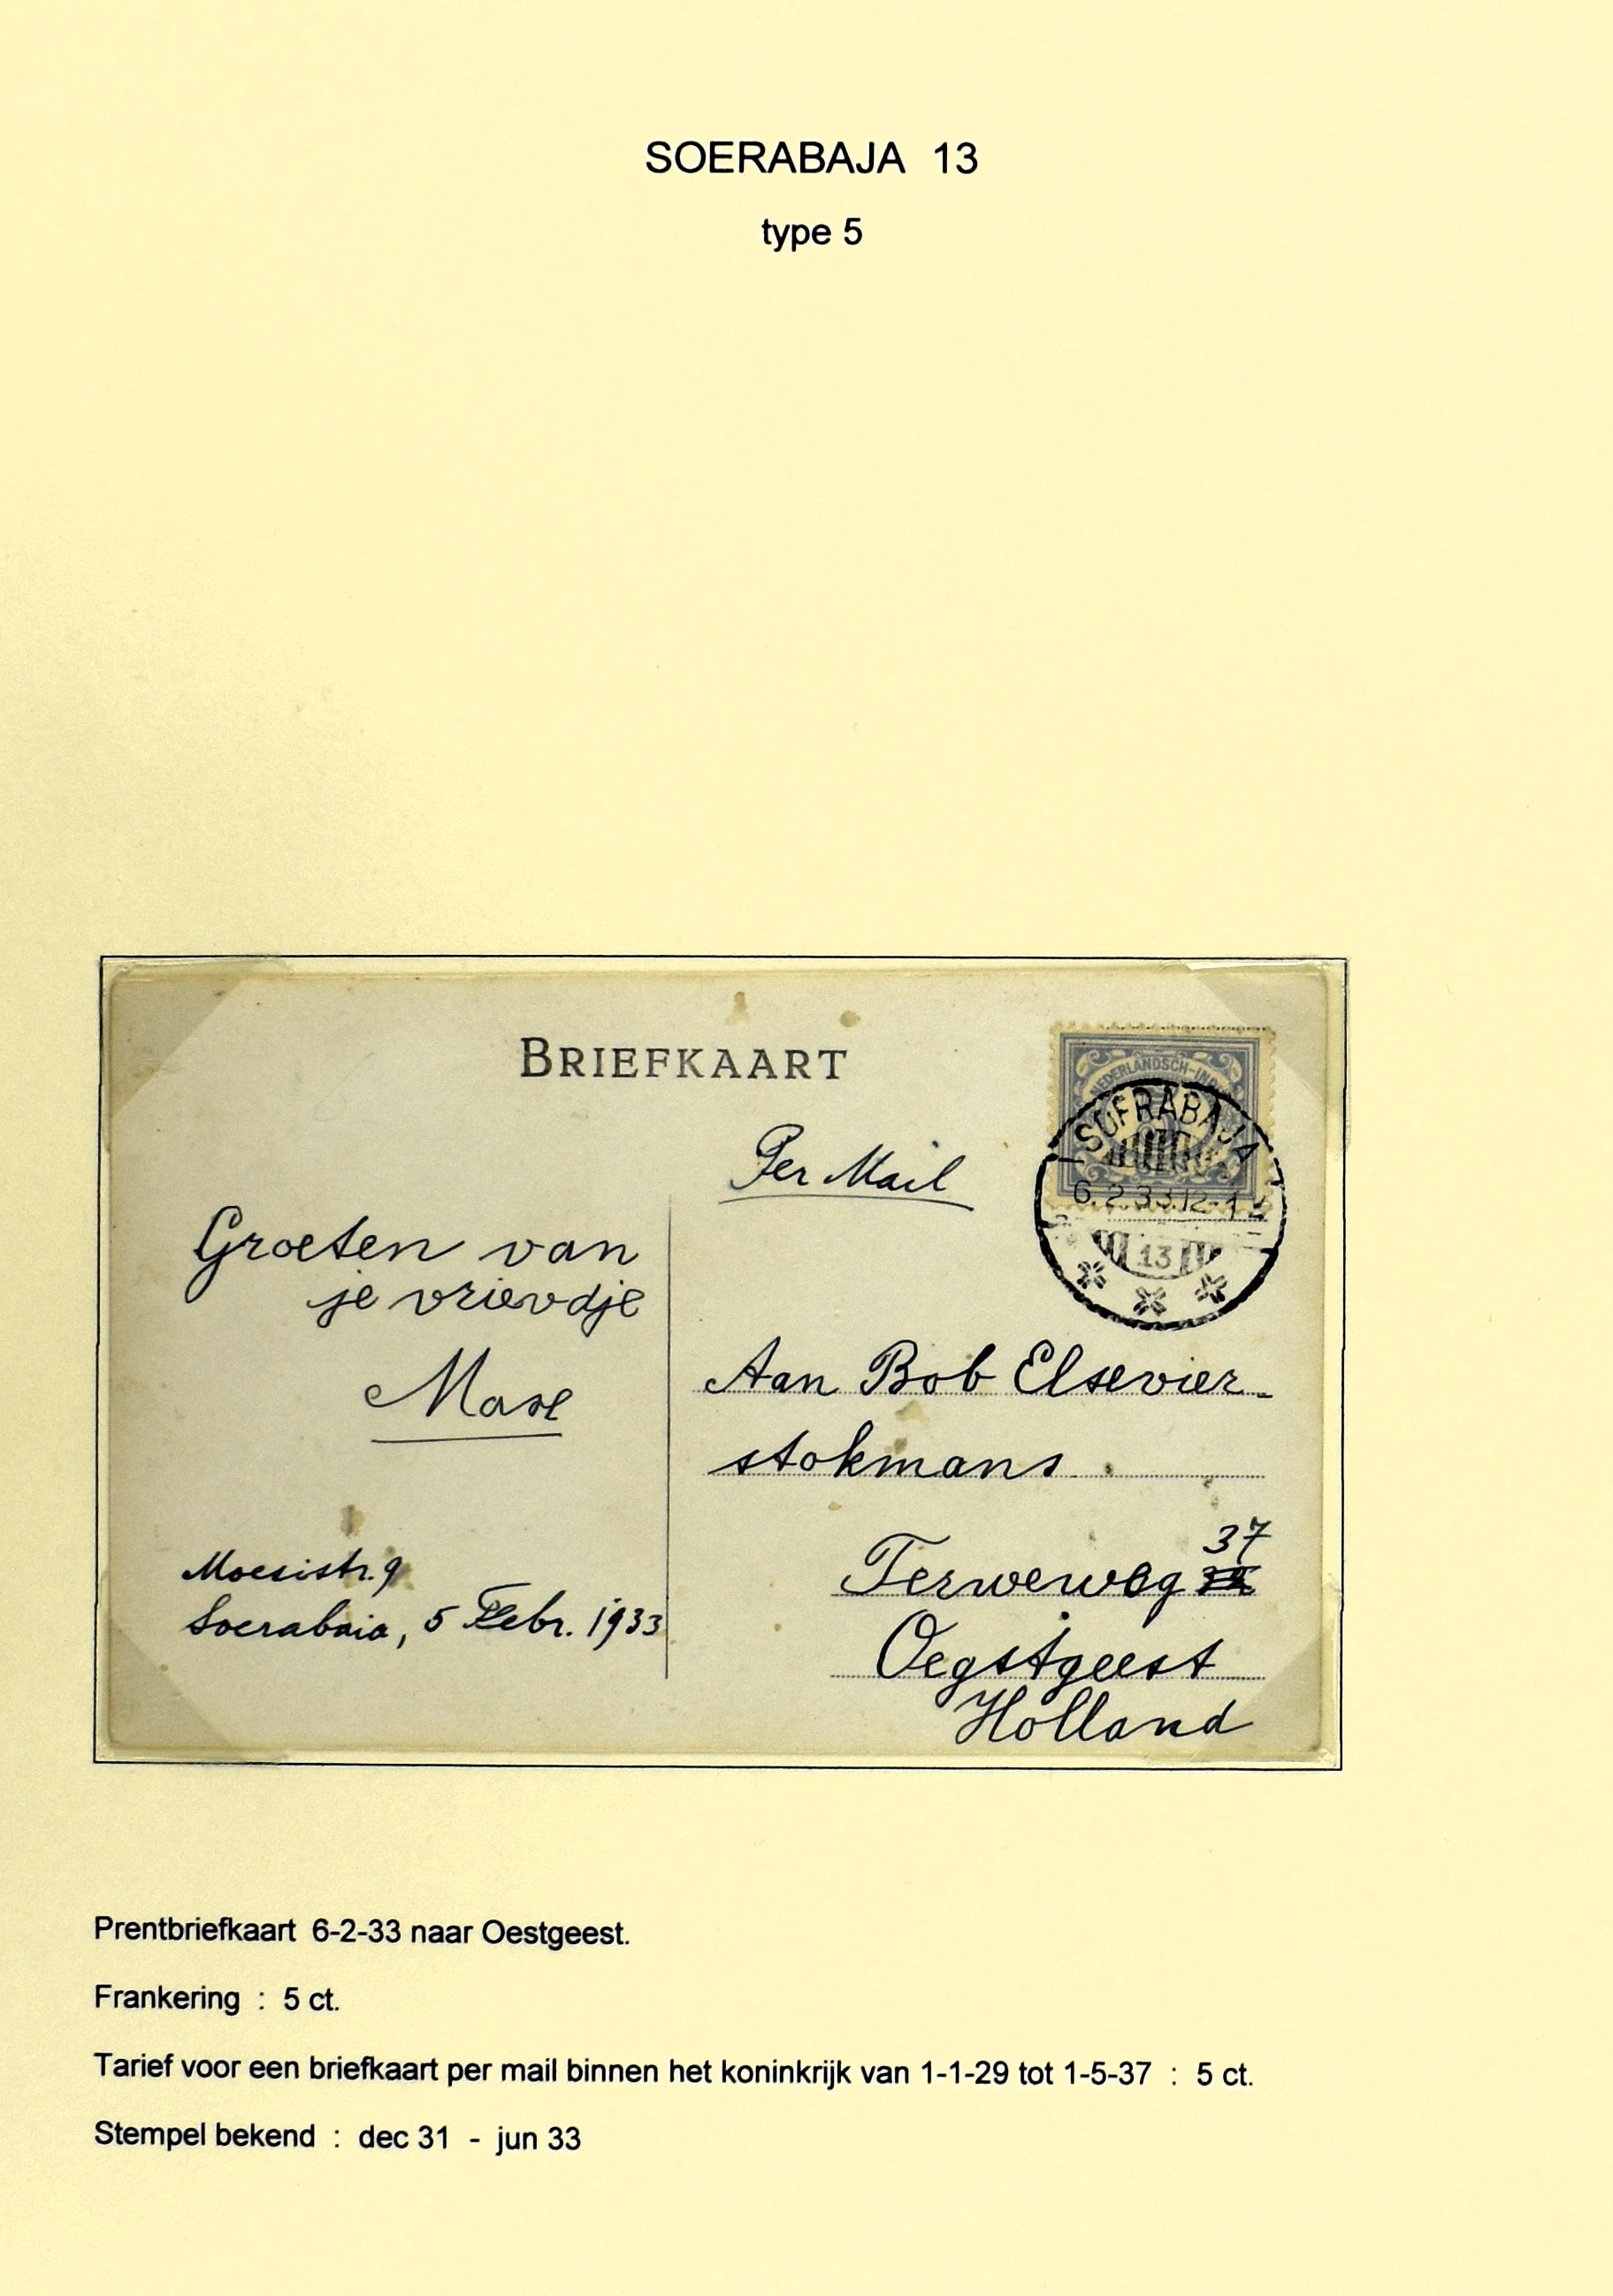 SOERABAJA 13
type 5
BRIEFKAART
NEDERLANDSCH-INDIË
SOERABAJA
6.2.33.12-1
13
Per Mail
Groeten van
je vriendje
Aan Bob Elsevier-
stokmans
37
Terweweg
Oegstgeest
Holland
Moesistr. 9
Soerabaia, 5 Febr. 1933
Prentbriefkaart 6-2-33 naar Oestgeest.
Frankering : 5 ct.
Tarief voor een briefkaart per mail binnen het koninkrijk van 1-1-29 tot 1-5-37 : 5 ct.
Stempel bekend : dec 31 - jun 33